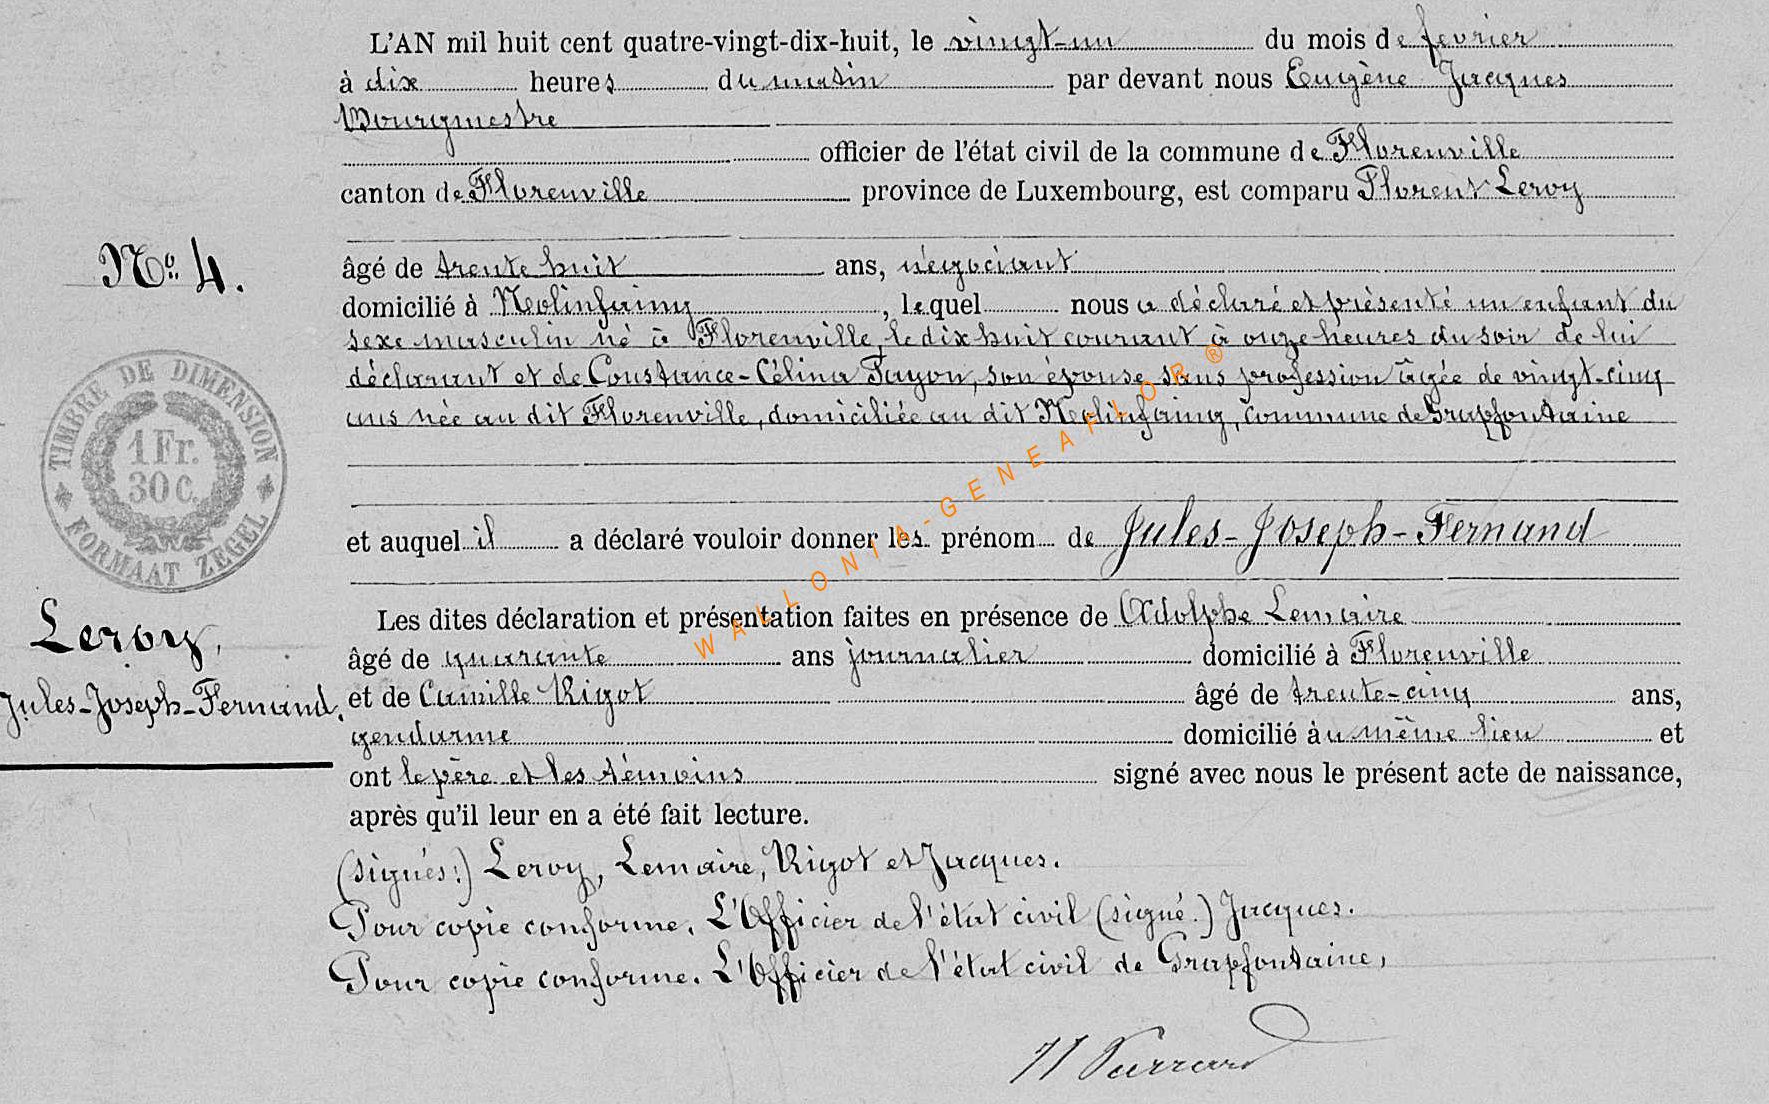 L'AN mil huit cent quatre-vingt-dix-huit, le vingt-un du mois de février
à dix heures du matin par devant nous Eugène Jacques
Bourgmestre
officier de l'état civil de la commune de Florenville
canton de Florenville province de Luxembourg, est comparu Florent Leroy
No. 4.
âgé de trente huit ans, négociant
domicilié à Molinfaing, lequel nous a déclaré et présenté un enfant du
sexe masculin né à Florenville, le dix huit courant à onze heures du soir de lui
déclarant et de Constance-Célina Payon, son épouse sans profession âgée de vingt-cinq
ans née au dit Florenville, domiciliée au dit Molinfaing, commune de Grapfontaine
TIMBRE DE DIMENSION
1 Fr.
30 C.
FORMAAT ZEGEL
WALLONIA-GENEAFLOR®
et auquel il a déclaré vouloir donner les prénom de Jules-Joseph-Fernand
Les dites déclaration et présentation faites en présence de Adolphe Lemaire
Leroy,
âgé de quarante ans journalier domicilié à Florenville
Jules-Joseph-Fernand.
et de Camille Rigot âgé de trente-cinq ans,
gendarme domicilié àu même lieu et
ont le père et les témoins signé avec nous le présent acte de naissance,
après qu'il leur en a été fait lecture.
(signés:) Leroy, Lemaire, Rigot et Jacques.
Pour copie conforme. L'Officier de l'état civil (signé.) Jacques.
Pour copie conforme. L'Officier de l'état civil de Grapfontaine,